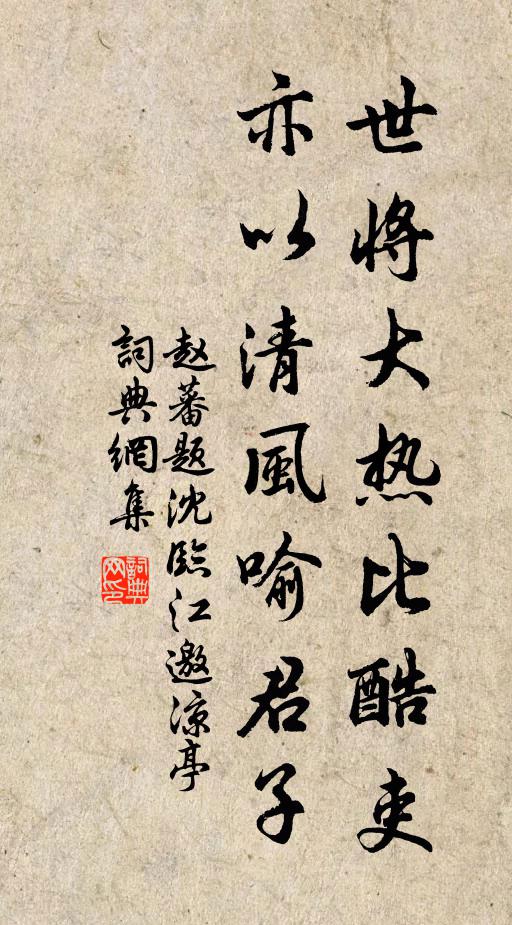 世将大热比酷吏
亦以清風喻君子
赵蕃题沈臨江邀凉亭
詞典網集
詞典网印